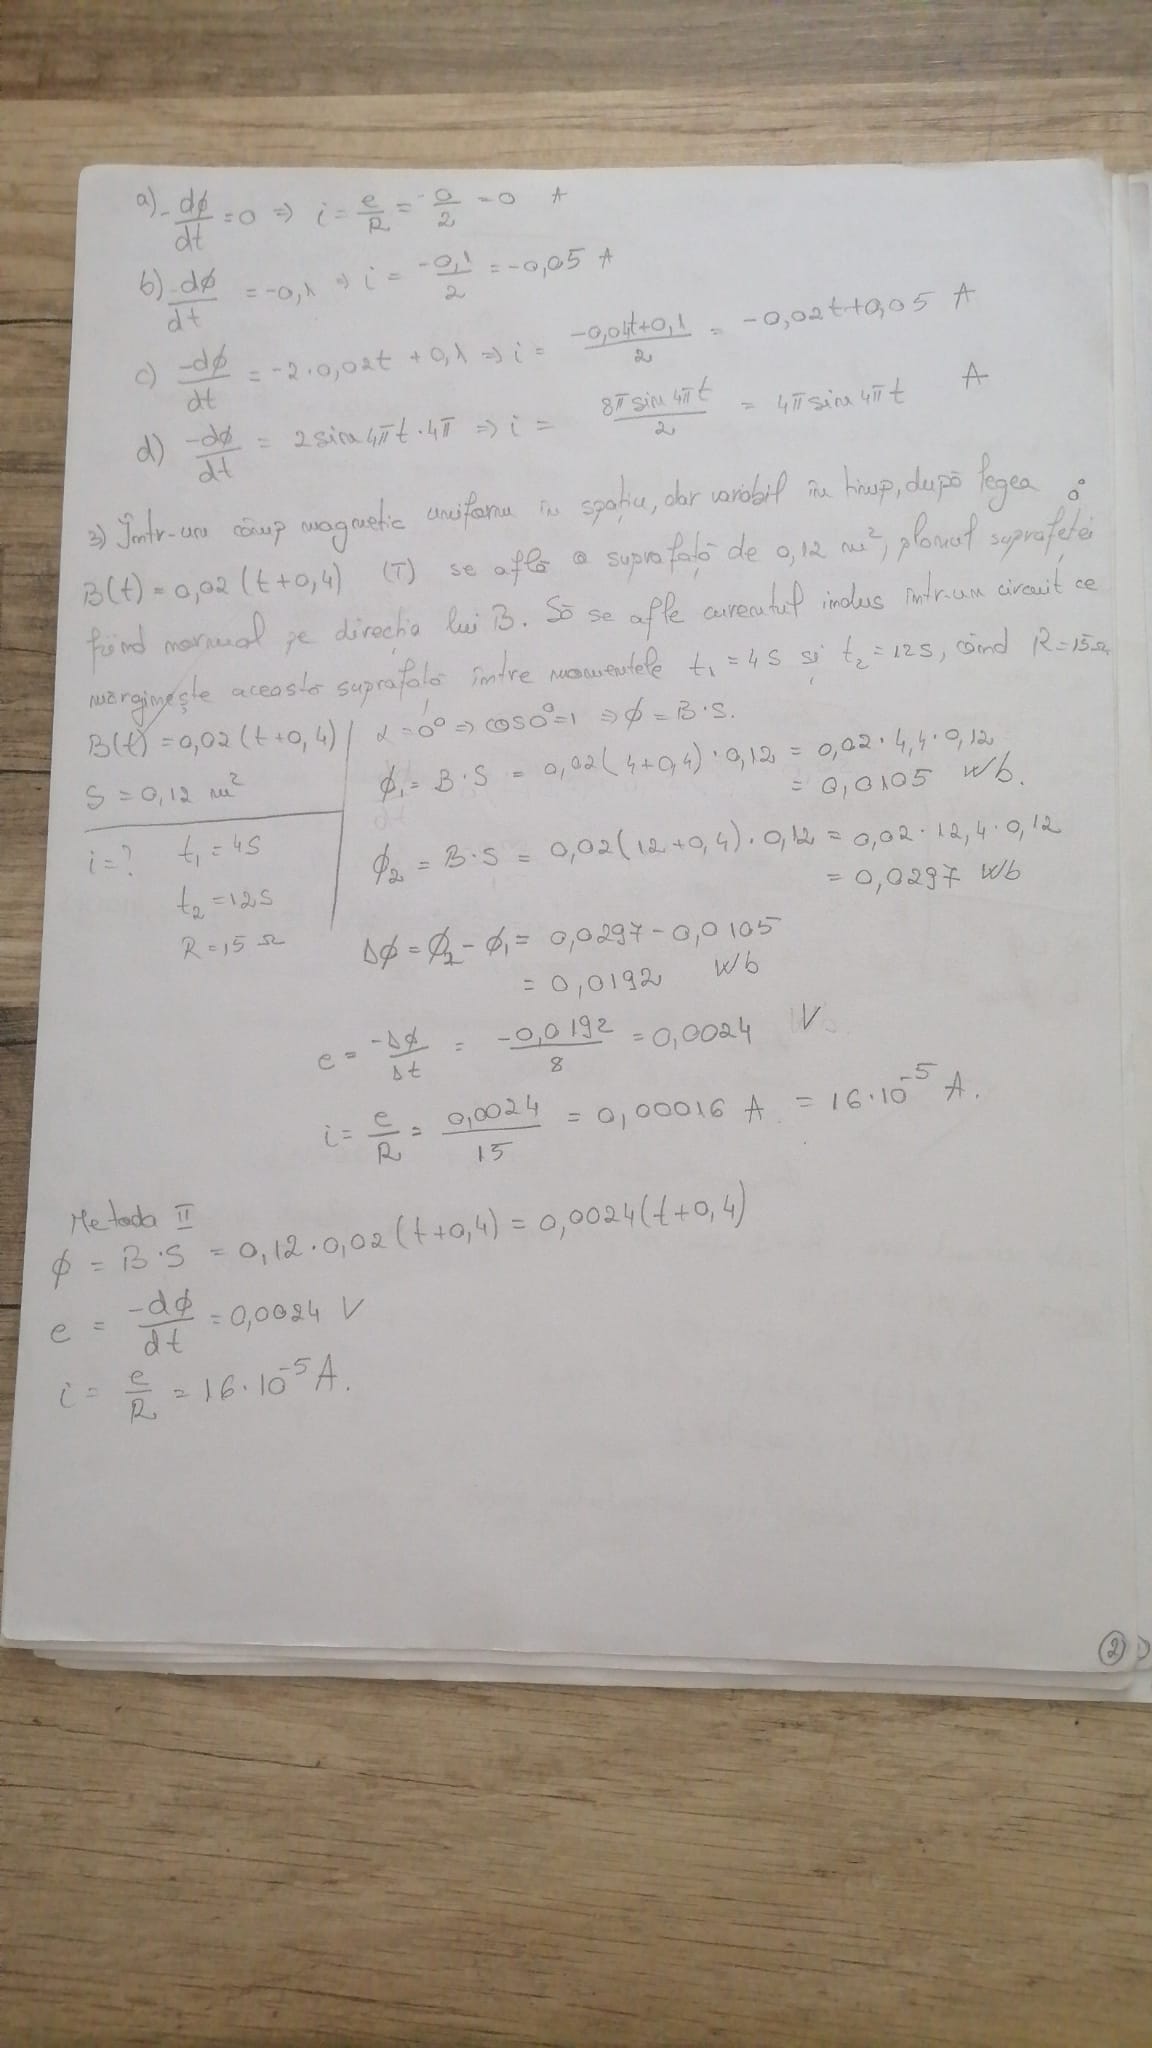 a) -dϕ/dt = 0 ⇒ i = e/R = -0/2 = 0 A
b) -dϕ/dt = -0,1 ⇒ i = -0,1/2 = -0,05 A
c) -dϕ/dt = -2·0,02t + 0,1 ⇒ i = -0,04t+0,1/2 = -0,02t+0,05 A
d) -dϕ/dt = 2 sin 4πt·4π ⇒ i = 8π sin 4πt/2 = 4π sin 4πt A
3) Într-un câmp magnetic uniform în spațiu, dar variabil în timp, după legea
B(t) = 0,02 (t+0,4) (T) se află o suprafață de 0,12 m², planul suprafeței
fiind normal pe direcția lui B. Să se afle curentul indus într-un circuit ce
mărginește această suprafață între momentele t₁ = 4s și t₂ = 12s, când R = 15Ω
B(t) = 0,02 (t+0,4) α = 0° ⇒ cos0° = 1 ⇒ ϕ = B·S.
S = 0,12 m² ϕ₁ = B·S = 0,02(4+0,4)·0,12 = 0,02·4,4·0,12
= 0,0105 Wb.
i = ? t₁ = 4s
ϕ₂ = B·S = 0,02(12+0,4)·0,12 = 0,02·12,4·0,12
t₂ = 12s = 0,0297 Wb
R = 15 Ω Δϕ = ϕ₂ - ϕ₁ = 0,0297 - 0,0105
= 0,0192 Wb
e = -Δϕ/Δt = -0,0192/8 = 0,0024 V
i = e/R = 0,0024/15 = 0,00016 A = 16·10⁻⁵ A.
Metoda II
ϕ = B·S = 0,12·0,02 (t+0,4) = 0,0024(t+0,4)
e = -dϕ/dt = 0,0024 V
i = e/R = 16·10⁻⁵ A.
2